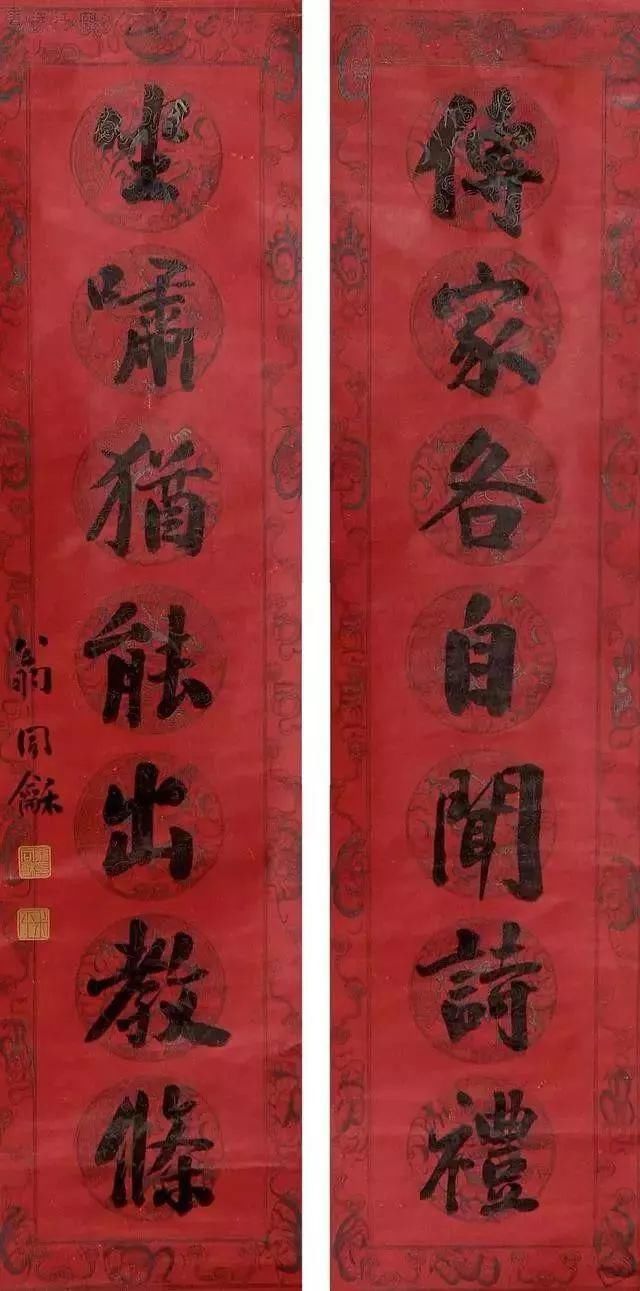 傳家各自聞詩禮
坐嘯猶能出教條
翁同龢